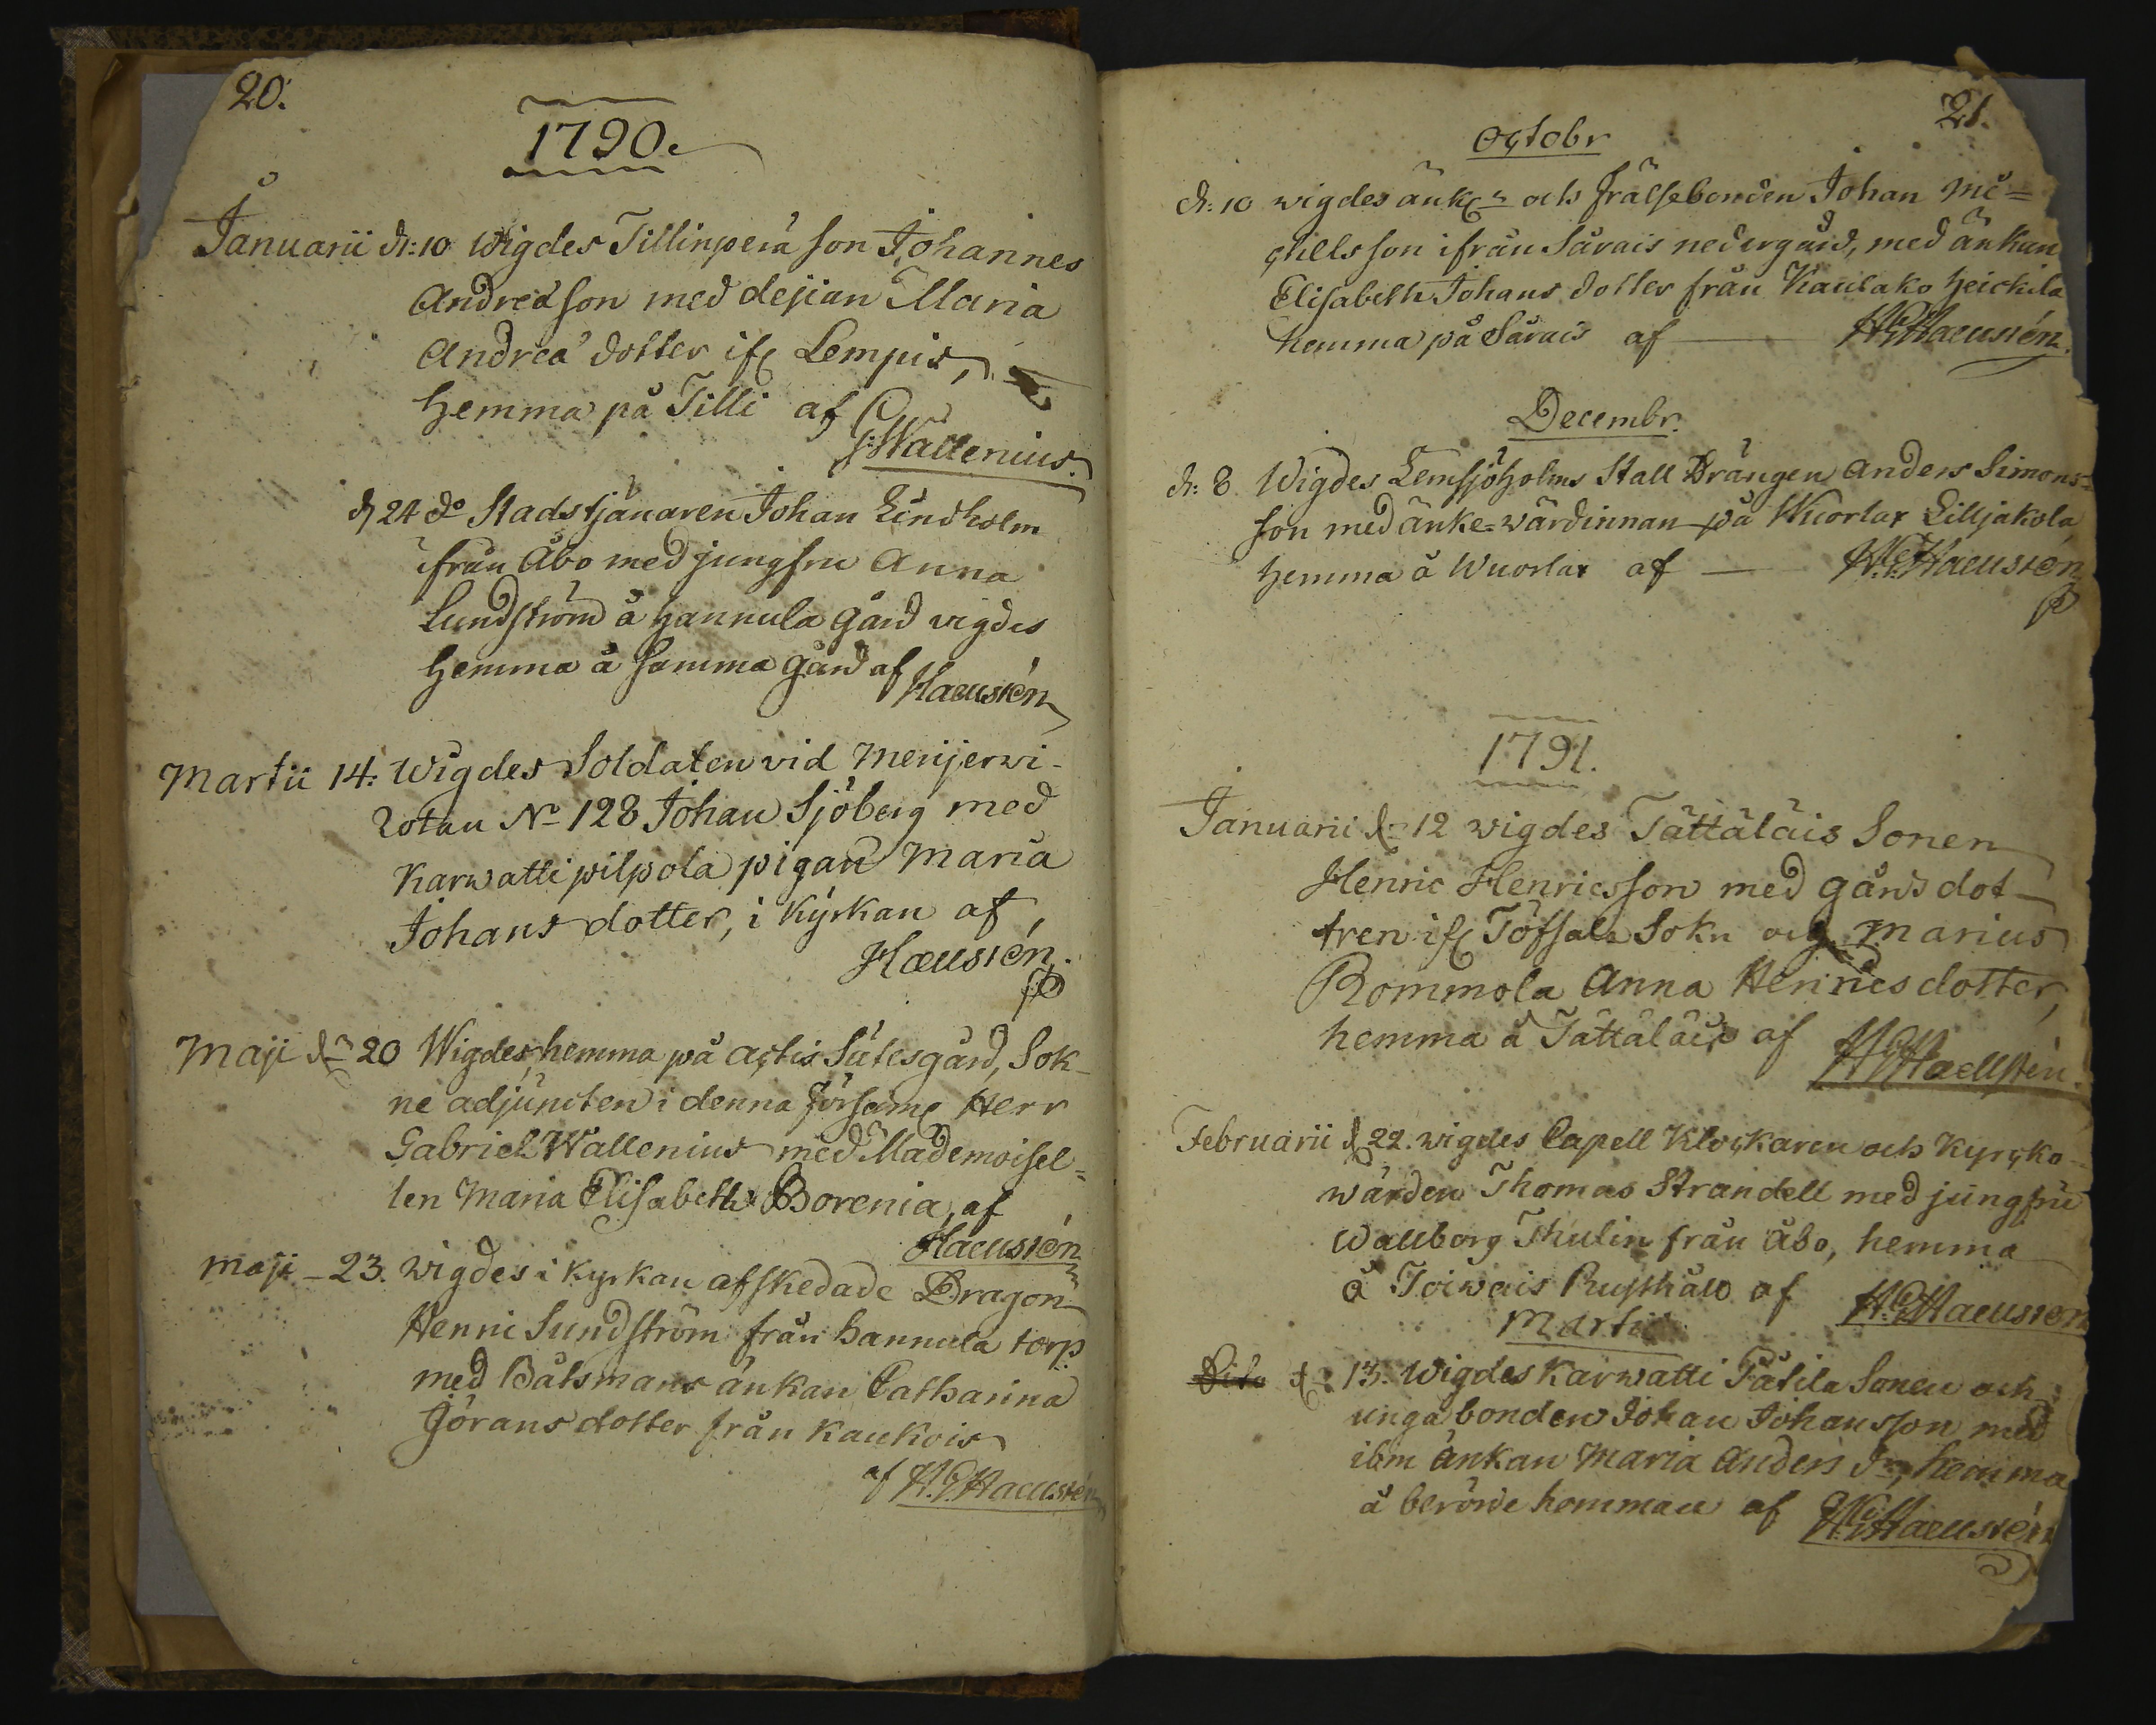 20.
1790.
Januarii d: 10 wigdes Tillinperä son Johannes
Andreæ son med dejian Maria
Andreæ dotter if Lempis,
hemma på Tilli af
G: Wallenius.
d 24 do Stadstjänaren Johan Lindholm
ifrån Åbo med jungfru Anna
Lundström å Hannula gård vigdes
hemma å samma gård af Haellstén
Martii 14. Wigdes Soldaten vid Merijerwi-
Rotan No 128 Johan Sjöberg med
Karwatti pilpola pigan Maria
Johans dotter, i Kyrkan af
Haellstén.
Maji d 20 Wigdes, hemma på Actis Sätesgård, Sok-
ne adjuncten i denna Församl Herr
Gabriel Wallenius med Mademoisel=
len Maria Elisabeth Borenia, af
Haellstén
Maji – 23. wigdes i Kyrkan afskedade Dragon
Henric Sundström från Hannula torp
med Båtsmans änkan Catharina
Görans dotter från Kaukois
af H.G. Haellstén
21.
Octobr
d: 10 wigdes änk och Frälsebonden Johan Mi=
chelsson ifrån Särais nedergård, med änkan
Elisabeth Johans dotter från Kaulako Heickila
hemma på Särais af — H.G. Haellstén.
Decembr.
d: 8 Wigdes Lemsjöholms Stall Drängen Anders Simons=
son med änke=wärdinnan på Wuorlax Lilljakola
hemma å Wuorlax af — H.G. Haellstén
1791.
Januarii d 12 wigdes Tättäläis Sonen
Henric Henricsson med gårds dot-
tren if Töfsala Sokn och Marius
Rommola Anna Henrics dotter,
hemma å Tättäläis af H.G. Haellstén.
Februarii d 22. wigdes Capell Klockaren och Kyrcko-
wärden Thomas Strandell med jungfru
Wallborg Thulin från Åbo, hemma
å Toiwais Rusthåll af H.G. Haellstén
Martii
Dito d 13. Wigdes Karwatti Pätila Sonen och
unga bonden Johan Johansson med
ibm änkan Maria Anders dr, hemma
å berörde hemman af H.G. Haellstén